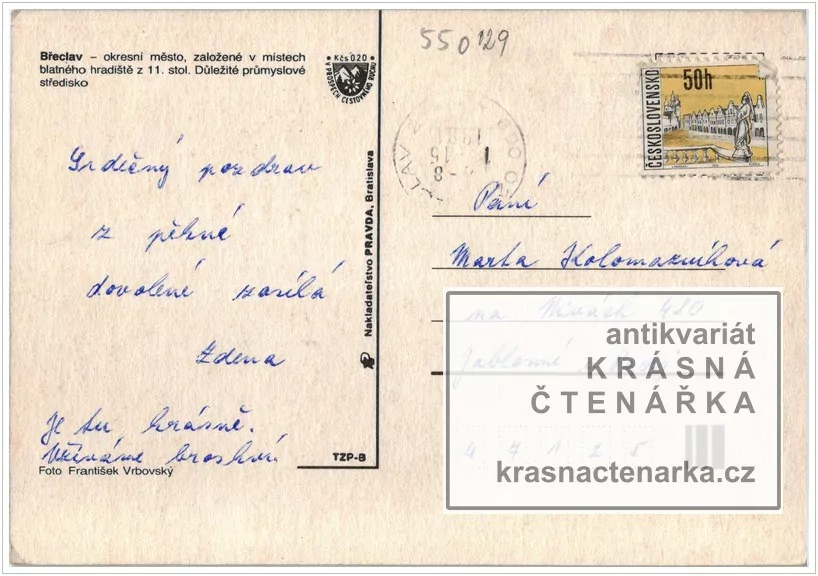 Břeclav – okresní město, založené v místech
blatného hradiště z 11. stol. Důležité průmyslové
středisko
Kčs 0,20
V PROSPĚCH CESTOVNÉHO RUCHU
Srdečný pozdrav
z pěkné
dovolené zasílá
Zdena
Je tu krásně.
Užíváme
Foto František Vrbovský
Nakladateľstvo PRAVDA, Bratislava
TZP-B
550129
ČESKOSLOVENSKO
50h
Paní
Marta Kolomazníková
na Nivách 480
Jablonné
47125
antikvariát
KRÁSNÁ
ČTENÁŘKA
krasnactenarka.cz